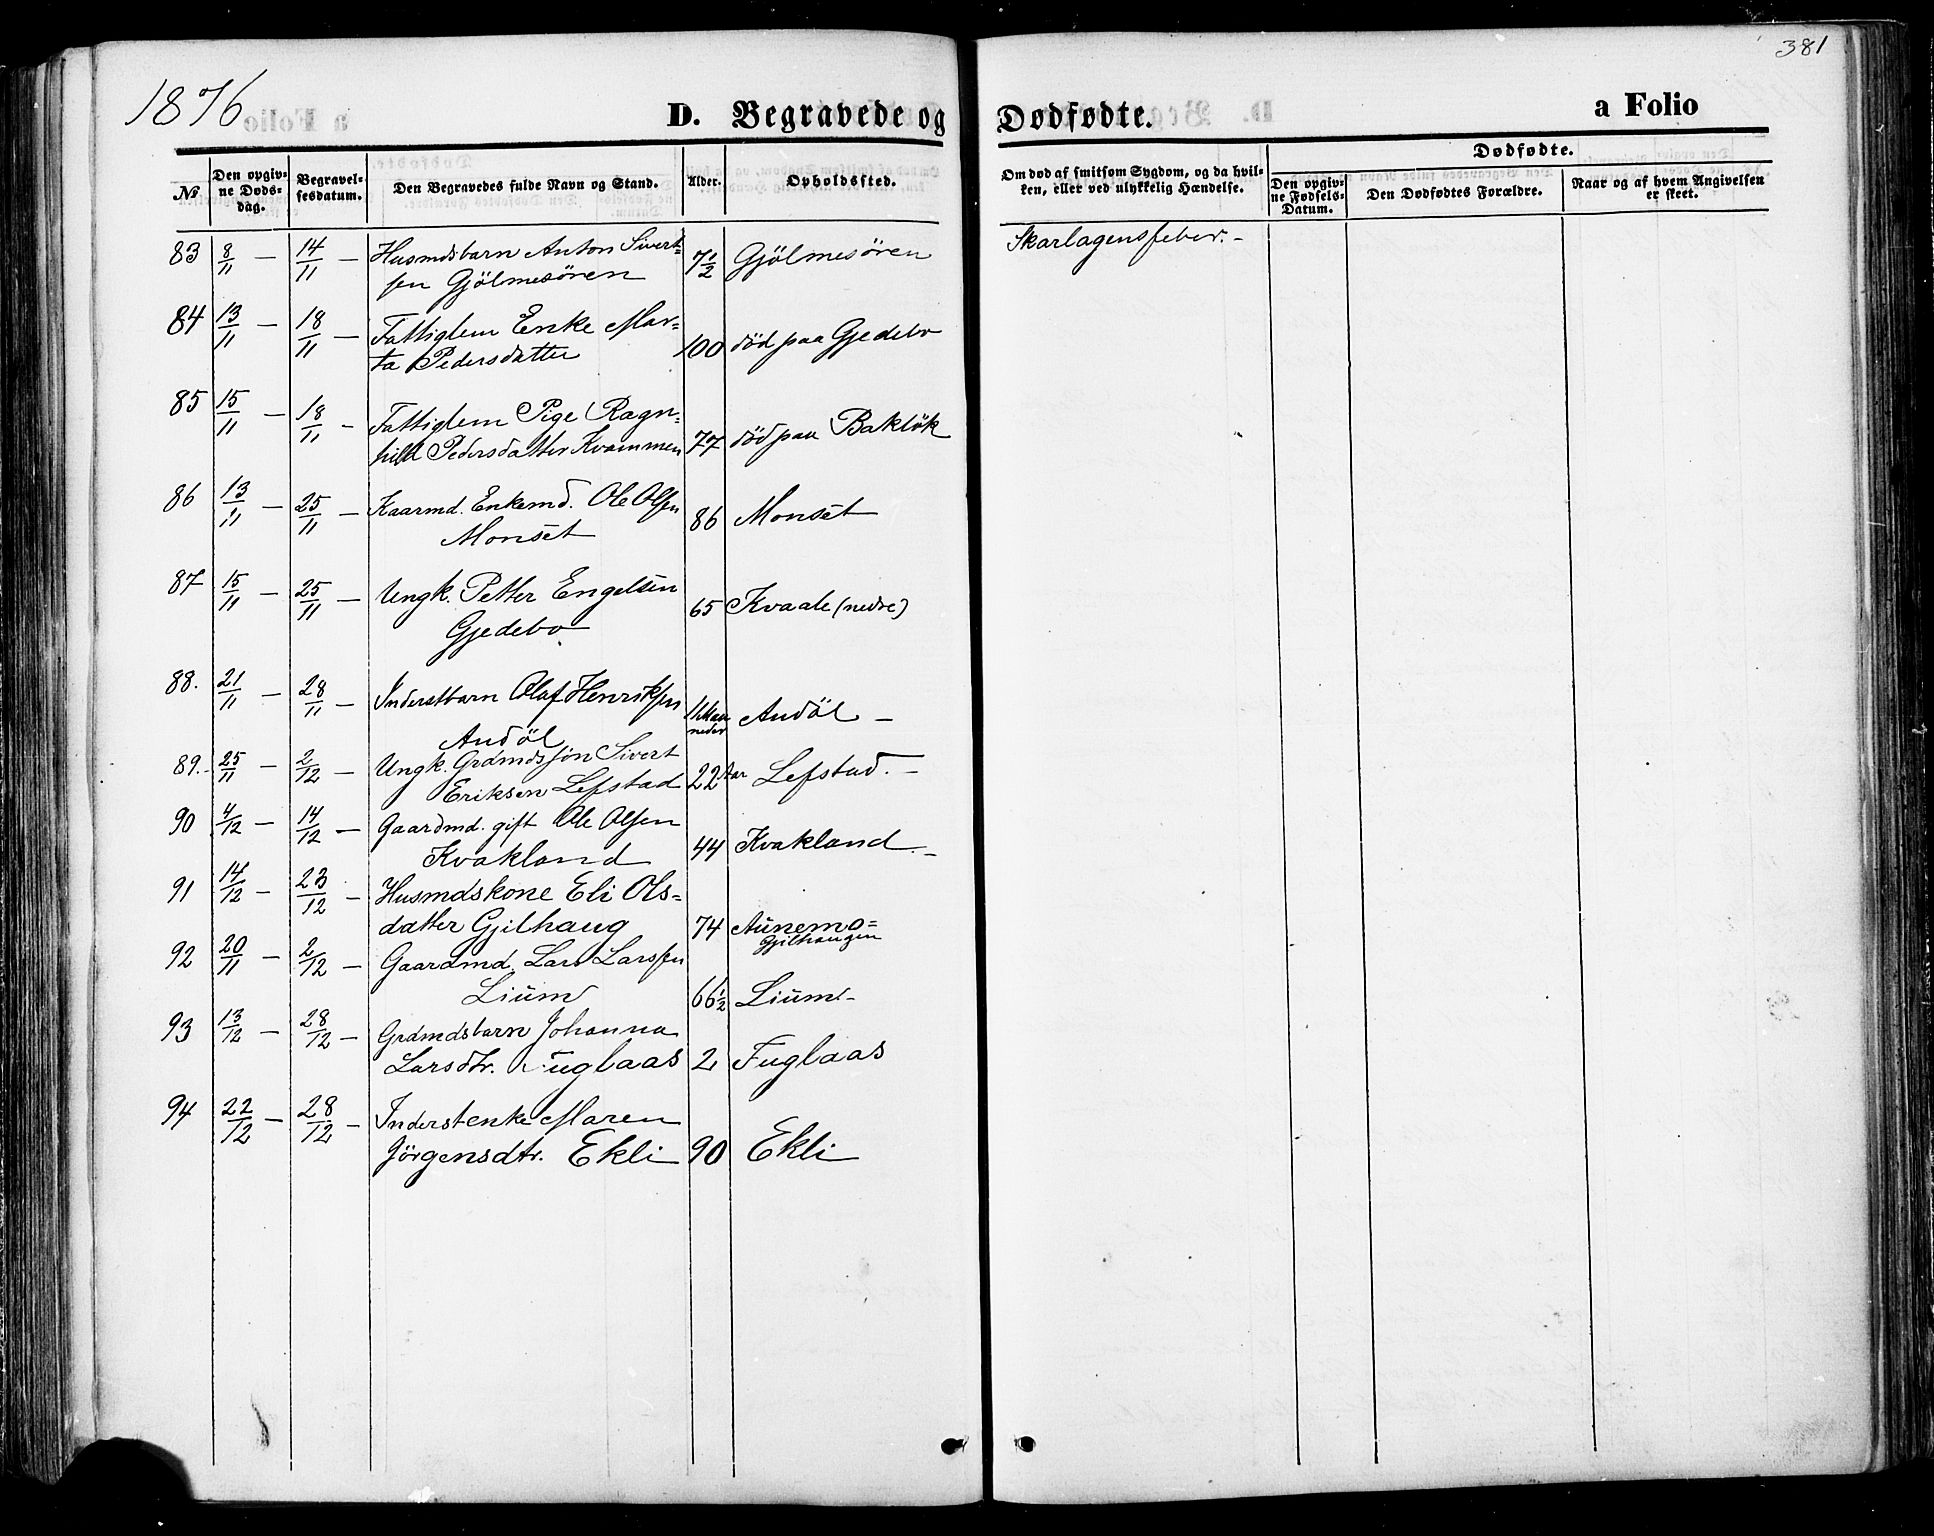 1876
381
D. Begravede og Dødfødte.
a Folio
No
Den opgiv-
ne Døds-
dag.
Begravel-
sesdatum.
Den Begravedes fulde Navn og Stand.
Alder.
Opholdssted.
Om død af smitsom Sygdom, og da hvil-
ken, eller ved ulykkelig Hændelse.
Dødfødte.
Den opgiv-
ne Fødsels-
Datum.
Den Dødfødtes Forældre.
Naar og af hvem Angivelsen
er skeet.
83 8/11 — 14/11 — Husmdsbarn Anton Sivert= 7½ Gjölmesören Skarlagensfeber.-
sen Gjölmesören
84 13/11 — 18/11 — Fattiglem Enke Mar=
ta Pedersdatter 100 död paa Gjedebo
85 15/11 — 18/11 - Fattiglem Pige Ragn=
hild Pedersdatter Kvammen 77 död paa Baklök
86 13/11 — 25/11 — Kaarmd. Enkemd. Ole Olsen 86 Monset
Monset
87 15/11 — 25/11 — Ungk. Petter Engelsen 65 Kvaale (nedre)
Gjedebo
88. 21/11 — 28/11 — Inderstbarn Olaf Henriksen 11 Maa Andöl —
neder
Andöl
89. 25/11 — 2/12 — Ungk. Grdmdssön Sivert
Eriksen Lefstad 22 Aar Lefstad. -
90 4/12 — 14/12 — Gaardmd. gift Ole Olsen
Kvakland 44 Kvakland -
91 14/12 — 23/12 — Husmdskone Eli Ols=
datter Gjilhaug 74 Aunemo=
Gjilhaugen
92 20/11 — 2/12 — Gaardmd. Lars Larssen
Lium 66½ Lium -
93 13/12 — 28/12 — Grdmdsbarn Johanna
Larsdtr. Fuglaas 2 Fuglaas
94 22/12 — 28/12 — Inderstenke Maren
Jörgensdtr. Ekli 90 Ekli